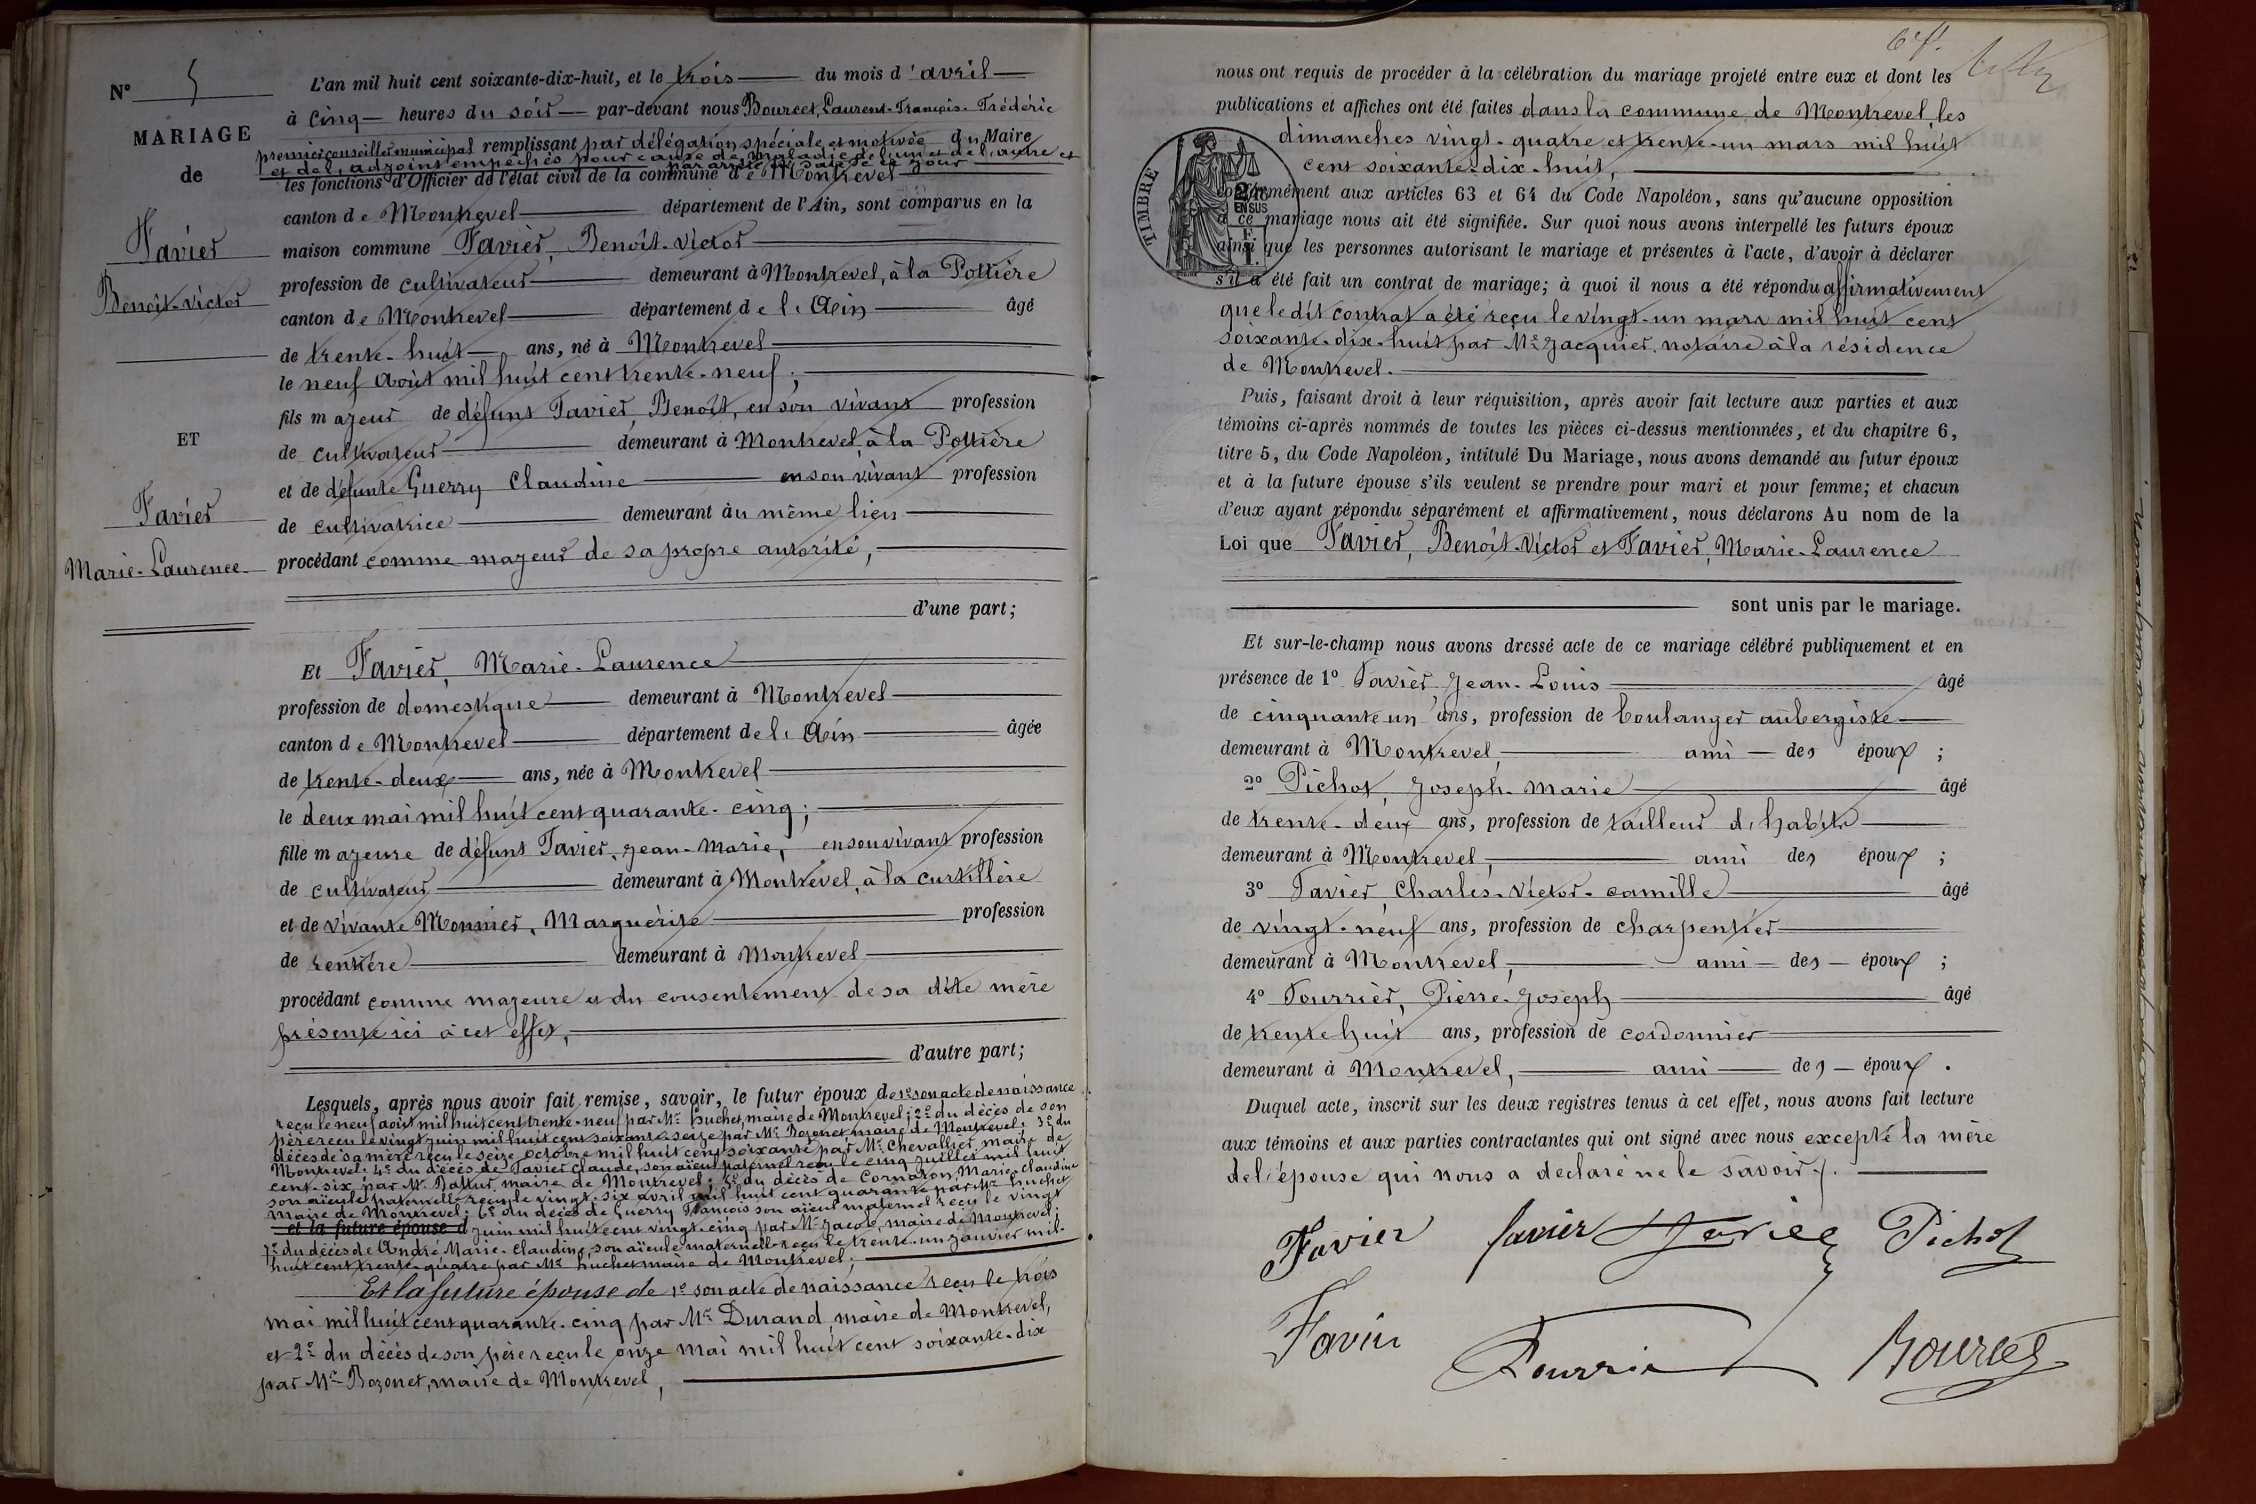 N° 5
MARIAGE
de
Favier
Benoît-Victor
ET
Favier
Marie-Laurence
L'an mil huit cent soixante-dix-huit, et le trois du mois d'avril
à cinq heures du soir par-devant nous Bourcet, Laurent-François-Frédéric
premier conseiller municipal remplissant par délégation spéciale et motivée du Maire
et de l'adjoint empêchés pour cause de maladie de l'un et de l'autre et
par arrêté en date de ce jour
les fonctions d'Officier de l'état civil de la commune de Montrevel
canton de Montrevel département de l'Ain, sont comparus en la
maison commune Favier, Benoît-Victor
profession de cultivateur demeurant à Montrevel, à la Pottière
canton de Montrevel département de l'Ain âgé
de trente-huit ans, né à Montrevel
le neuf août mil huit cent trente-neuf;
fils majeur de défunt Favier, Benoît, en son vivant profession
de cultivateur demeurant à Montrevel, à la Pottière
et de défunte Guerry Claudine en son vivant profession
de cultivatrice demeurant au même lieu
procédant comme majeur de sa propre autorité,
d'une part;
Et Favier, Marie-Laurence
profession de domestique demeurant à Montrevel
canton de Montrevel département de l'Ain âgée
de trente-deux ans, née à Montrevel
le deux mai mil huit cent quarante-cinq;
fille majeure de défunt Favier, Jean-Marie, en son vivant profession
de cultivateur demeurant à Montrevel, à la curtillère
et de vivante Monnier, Marguerite profession
de rentière demeurant à Montrevel
procédant comme majeure et du consentement de sa dite mère
présente ici à cet effet,
d'autre part;
Lesquels, après nous avoir fait remise, savoir, le futur époux de 1° son acte de naissance
reçu le neuf août mil huit cent trente-neuf par Mr Huchet, maire de Montrevel; 2° du décès de son
père reçu le vingt juin mil huit cent soixante-seize par Mr Bozonet, maire de Montrevel; 3° du
décès de sa mère reçu le seize octobre mil huit cent soixante par Mr Chevallier, maire de
Montrevel; 4° du décès de Favier Claude, son aïeul paternel reçu le cinq juillet mil huit
cent-six par Mr maire de Montrevel; 5° du décès de Cornaton, Marie-Claudine
son aïeule paternelle reçu le vingt-six avril mil huit cent quarante par Mr Huchet
maire de Montrevel; 6° du décès de Guerry François son aïeul maternel reçu le vingt
et la future épouse d juin mil huit cent vingt-cinq par Mr Jacob, maire de Montrevel;
7° du décès de André Marie-Claudine, son aïeule maternelle reçu le trente-un janvier mil
huit cent trente-quatre par Mr Huchet maire de Montrevel;
Et la future épouse de 1° son acte de naissance reçu le trois
mai mil huit cent quarante-cinq par Mr Durand, maire de Montrevel,
et 2° du décès de son père reçu le onze mai mil huit cent soixante-dix
par Mr Bozonet, maire de Montrevel,
nous ont requis de procéder à la célébration du mariage projeté entre eux et dont les
publications et affiches ont été faites dans la commune de Montrevel les
dimanches vingt-quatre et trente-un mars mil huit
cent soixante-dix-huit,
TIMBRE
2/10
EN SUS
conformément aux articles 63 et 64 du Code Napoléon, sans qu'aucune opposition
à ce mariage nous ait été signifiée. Sur quoi nous avons interpellé les futurs époux
ainsi que les personnes autorisant le mariage et présentes à l'acte, d'avoir à déclarer
s'il a été fait un contrat de mariage; à quoi il nous a été répondu affirmativement
que ledit contrat a été reçu le vingt-un mars mil huit cent
soixante-dix-huit par Me Jacquier, notaire à la résidence
de Montrevel.
Puis, faisant droit à leur réquisition, après avoir fait lecture aux parties et aux
témoins ci-après nommés de toutes les pièces ci-dessus mentionnées, et du chapitre 6,
titre 5, du Code Napoléon, intitulé Du Mariage, nous avons demandé au futur époux
et à la future épouse s'ils veulent se prendre pour mari et pour femme; et chacun
d'eux ayant répondu séparément et affirmativement, nous déclarons Au nom de la
Loi que Favier, Benoît-Victor et Favier, Marie-Laurence
sont unis par le mariage.
Et sur-le-champ nous avons dressé acte de ce mariage célébré publiquement et en
présence de 1° Favier, Jean-Louis âgé
de cinquante un ans, profession de boulanger aubergiste
demeurant à Montrevel, ami des époux;
2° Pichot, Joseph-Marie âgé
de trente-deux ans, profession de tailleur d'habits
demeurant à Montrevel, ami des époux;
3° Favier, Charles-Victor-Camille âgé
de vingt-neuf ans, profession de charpentier
demeurant à Montrevel, ami des époux;
4° Fourrier, Pierre-Joseph âgé
de trente huit ans, profession de cordonnier
demeurant à Montrevel, ami des époux.
Duquel acte, inscrit sur les deux registres tenus à cet effet, nous avons fait lecture
aux témoins et aux parties contractantes qui ont signé avec nous excepté la mère
de l'épouse qui nous a déclaré ne le savoir.
Favier favier Pichot
Favier Fourrier Bourcet